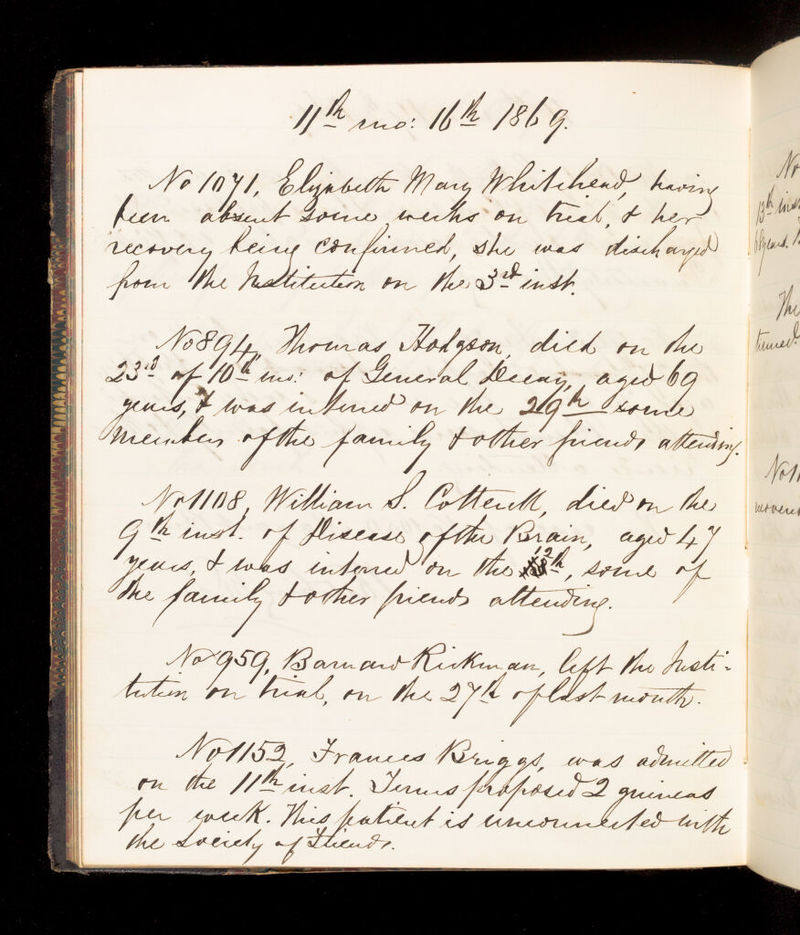 11th mo: 16th 1869.
No 1071, Elizabeth Mary Whitehead, having
been absent some weeks on trial, & her
recovery being confirmed, she was discharged
from the Institution on the 3rd inst.
No 894, Thomas Hodgson, died on the
23rd of 10th mo: of General Decay, aged 69
years, & was interred on the 29th some
members of the family & other friends attending.
No 1108, William S. , died on the
9th inst. of Disease of the Brain, aged 47
years, & was interred on the 12th, some of
the family & other friends attending.
No 959, Barnard Rickman, left the Insti-
tution on trial, on the 27th of last month.
No 1152, Frances Briggs, was admitted
on the 11th inst. Terms proposed 2 guineas
per week. This patient is unconnected with
the Society of Friends.
No
13th inst
68 years.
The
No 11